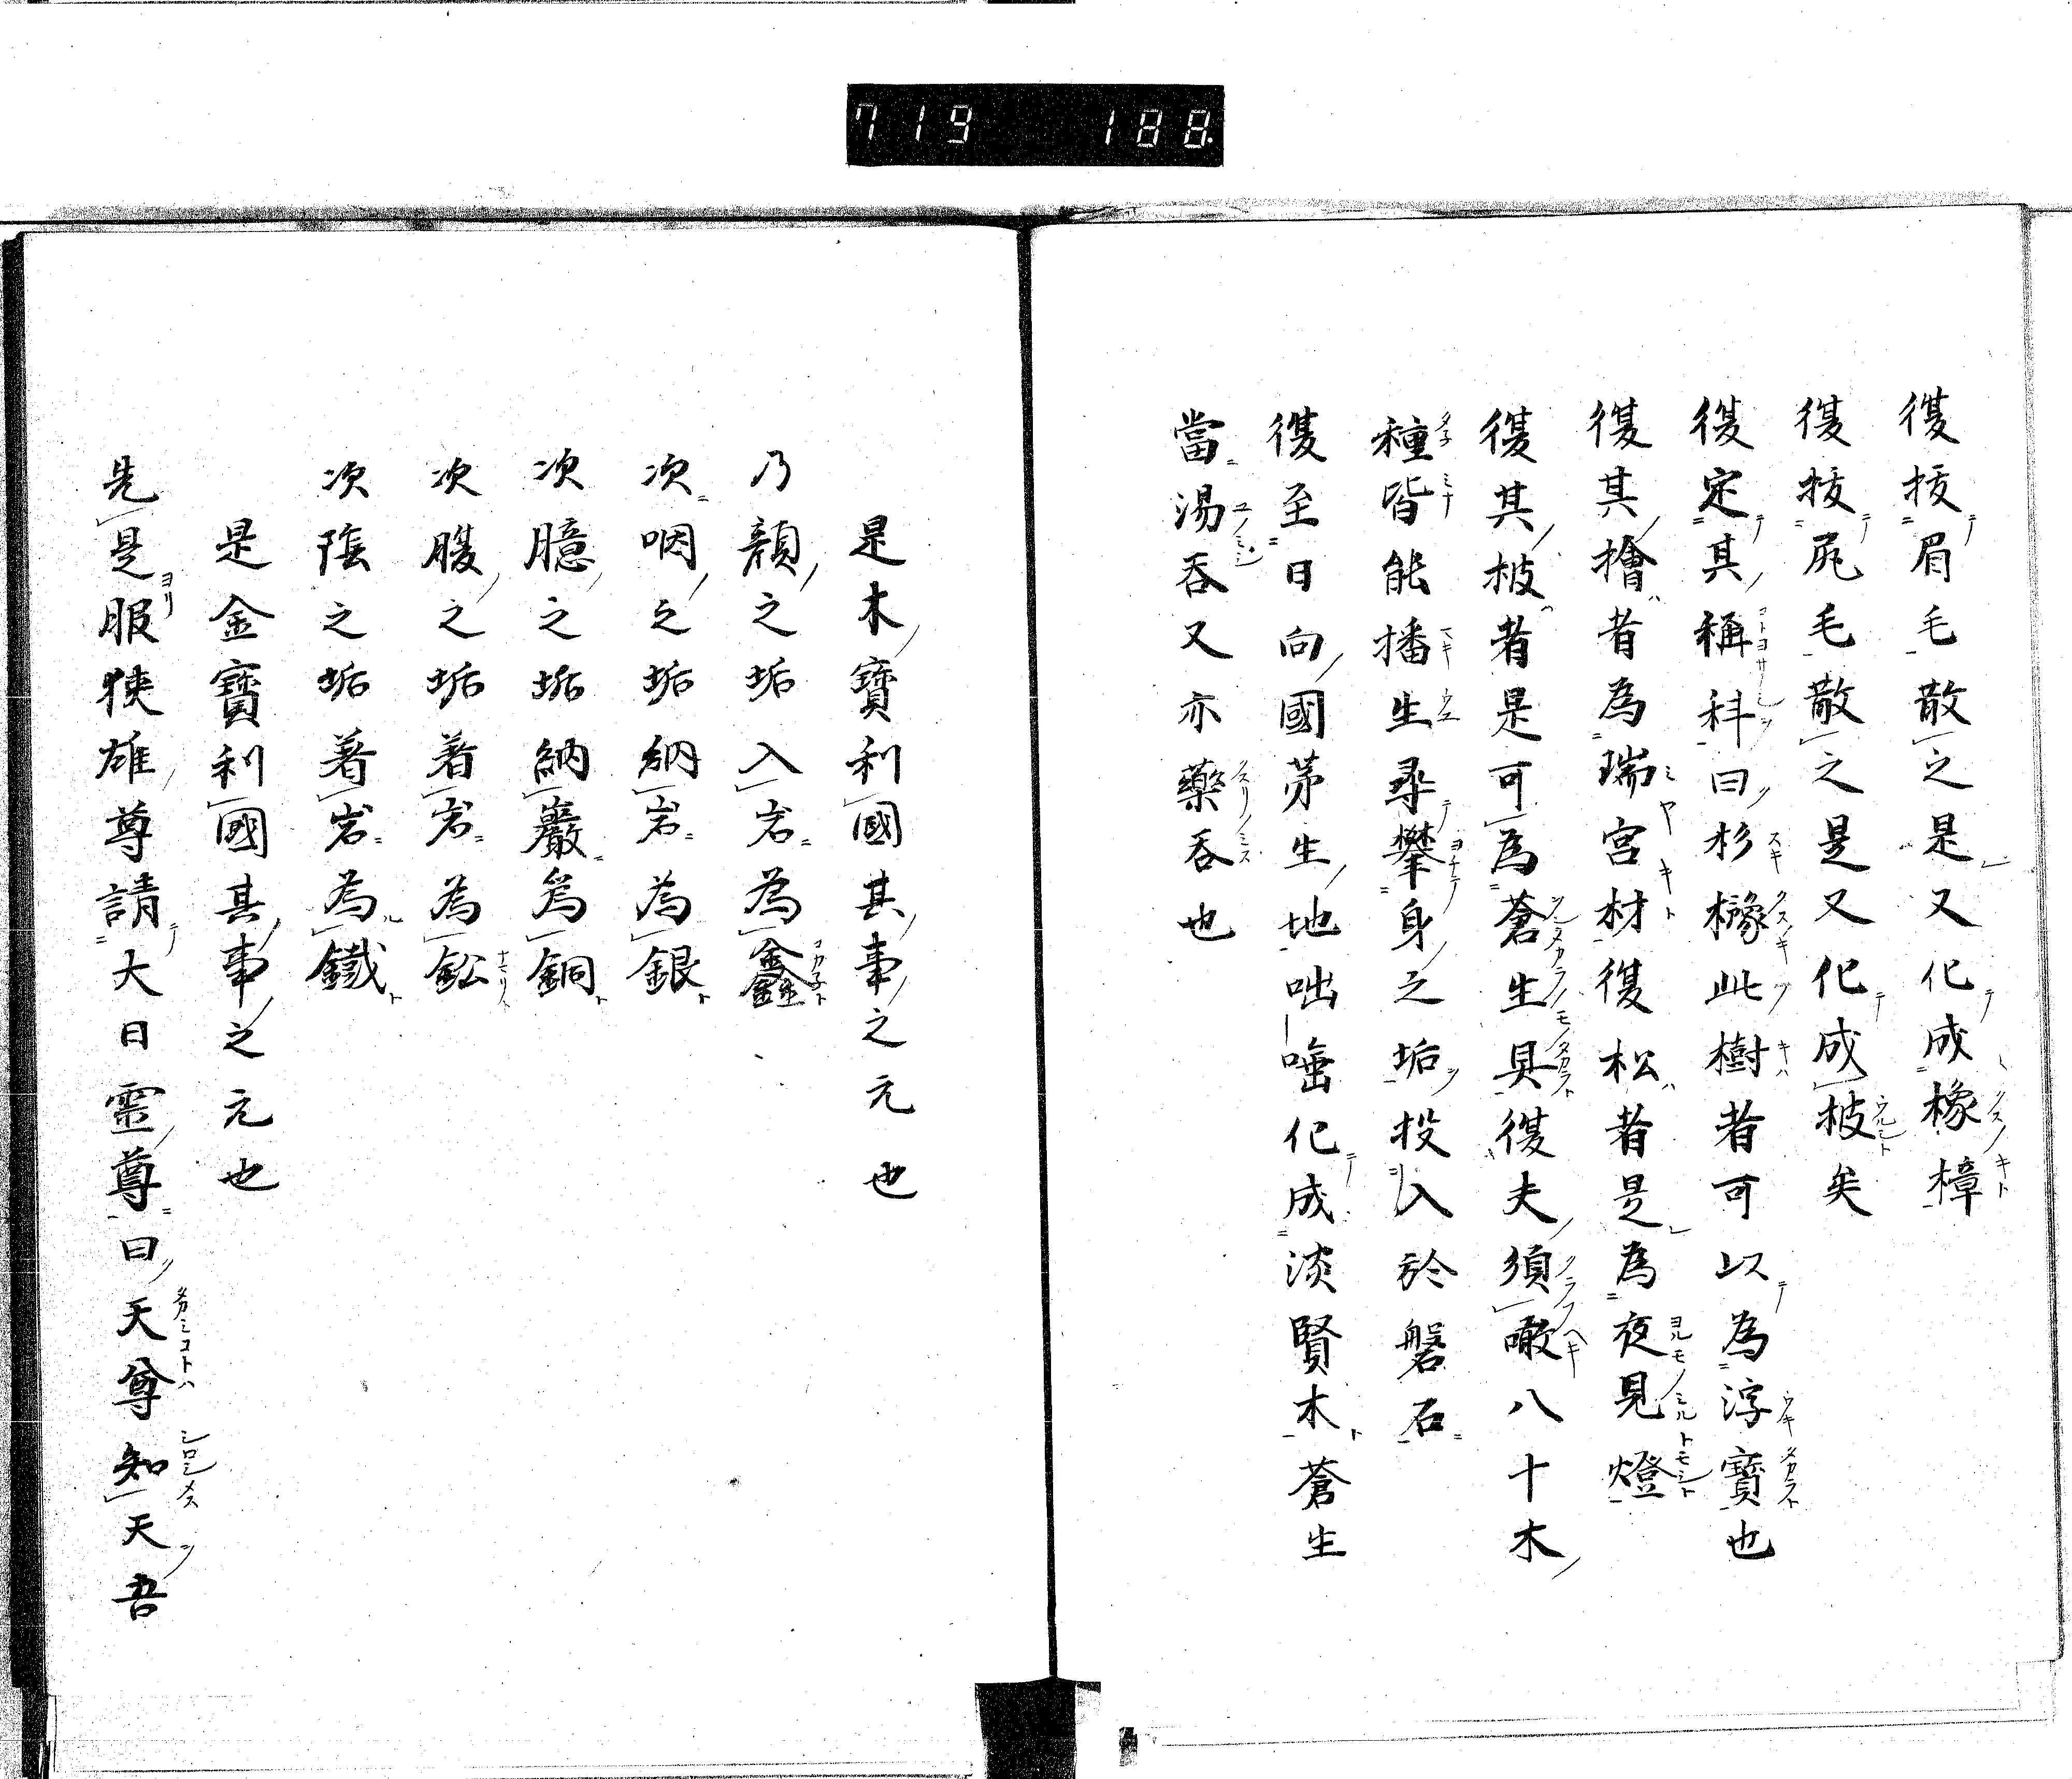 719 188
復抜眉毛散之是又化成橡樟
復抜尻毛散之是又化成柀矣
復定其稱科曰杉櫲此樹者可以為浮寳也
復其檜者為瑞宮材復松者是為夜見燈
復其柀者是可為蒼生具復夫須噉八十木
種皆能播生尋攀身之垢投入於磐石
復至日向國茅生地咄嚙化成淡賢木蒼生
當湯呑又亦藥呑也
是木寳利國其事之元也
乃顔之垢入岩為鑫
次咽之垢納岩為銀
次臆之垢納巖為銅
次腹之垢著岩為鈆
次陰之垢著岩為鐵
是金寳利國其事之元也
先是服狹雄尊請大日霊尊曰天尊知天吾